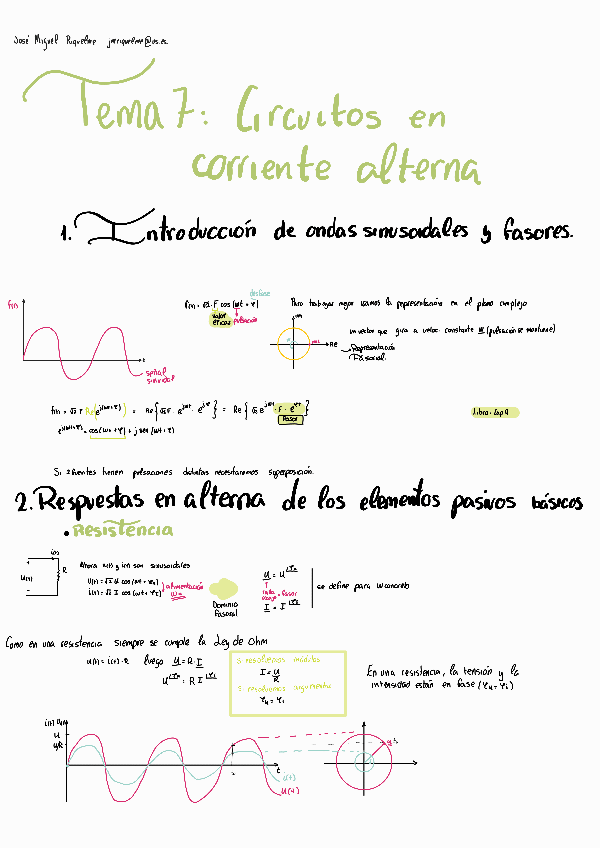 José Miguel Riquelme
Tema 7: Circuitos en
corriente alterna
1. Introducción de ondas sinusoidales y fasores.
desfase
f(t) = √2 · F cos (wt + φ)
valor eficaz
pulsación
Para trabajar mejor usamos la representación en el plano complejo
Im
Re
un vector que gira a veloc. constante w (pulsación se mantiene)
Representación
Fasorial
f(t)
t
señal
sinusoidal
Libro: Cap 9
Fasor
Si 2 fuentes tienen pulsaciones distintas necesitaremos superposición.
2. Respuestas en alterna de los elementos pasivos básicos
• Resistencia
i(t)
u(t)
R
Ahora u(t) y i(t) son sinusoidales
u(t) = √2 U cos (wt + φu)
i(t) = √2 I cos (wt + φi)
alimentación
Dominio
Fasorial
fasor
se define para w concreto
Como en una resistencia siempre se cumple la Ley de Ohm
u(t) = i(t) · R luego U = R · I
Si resolvemos módulos
I = U/R
Si resolvemos argumentos
φu = φi
En una resistencia, la tensión y la
intensidad están en fase (φu = φi)
i(t) u(t)
U
U/R
t
i(t)
u(t)